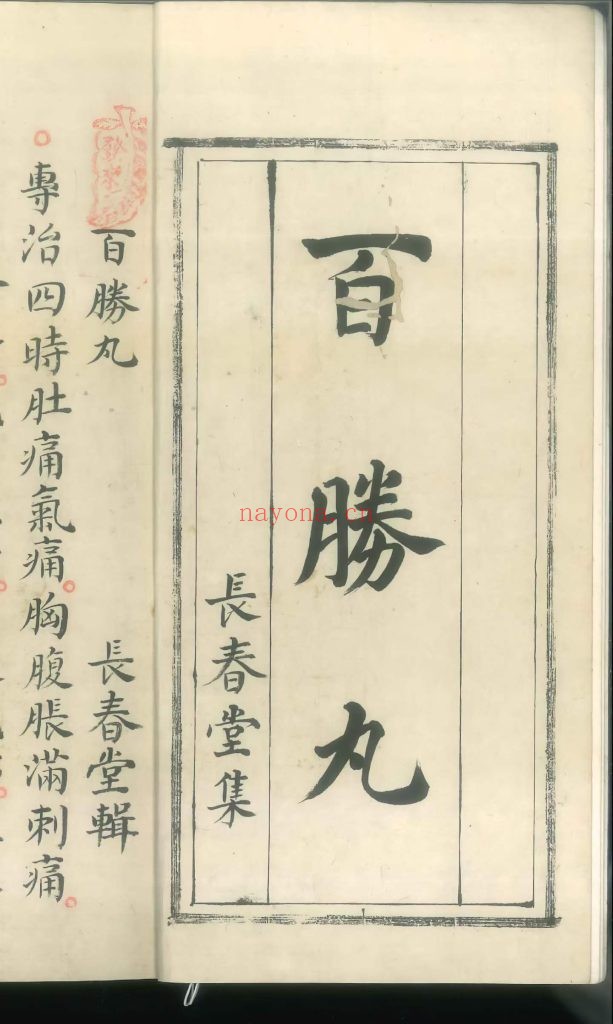 百勝丸
長春堂集
百勝丸 長春堂輯
專治四時肚痛氣痛胸腹脹滿刺痛